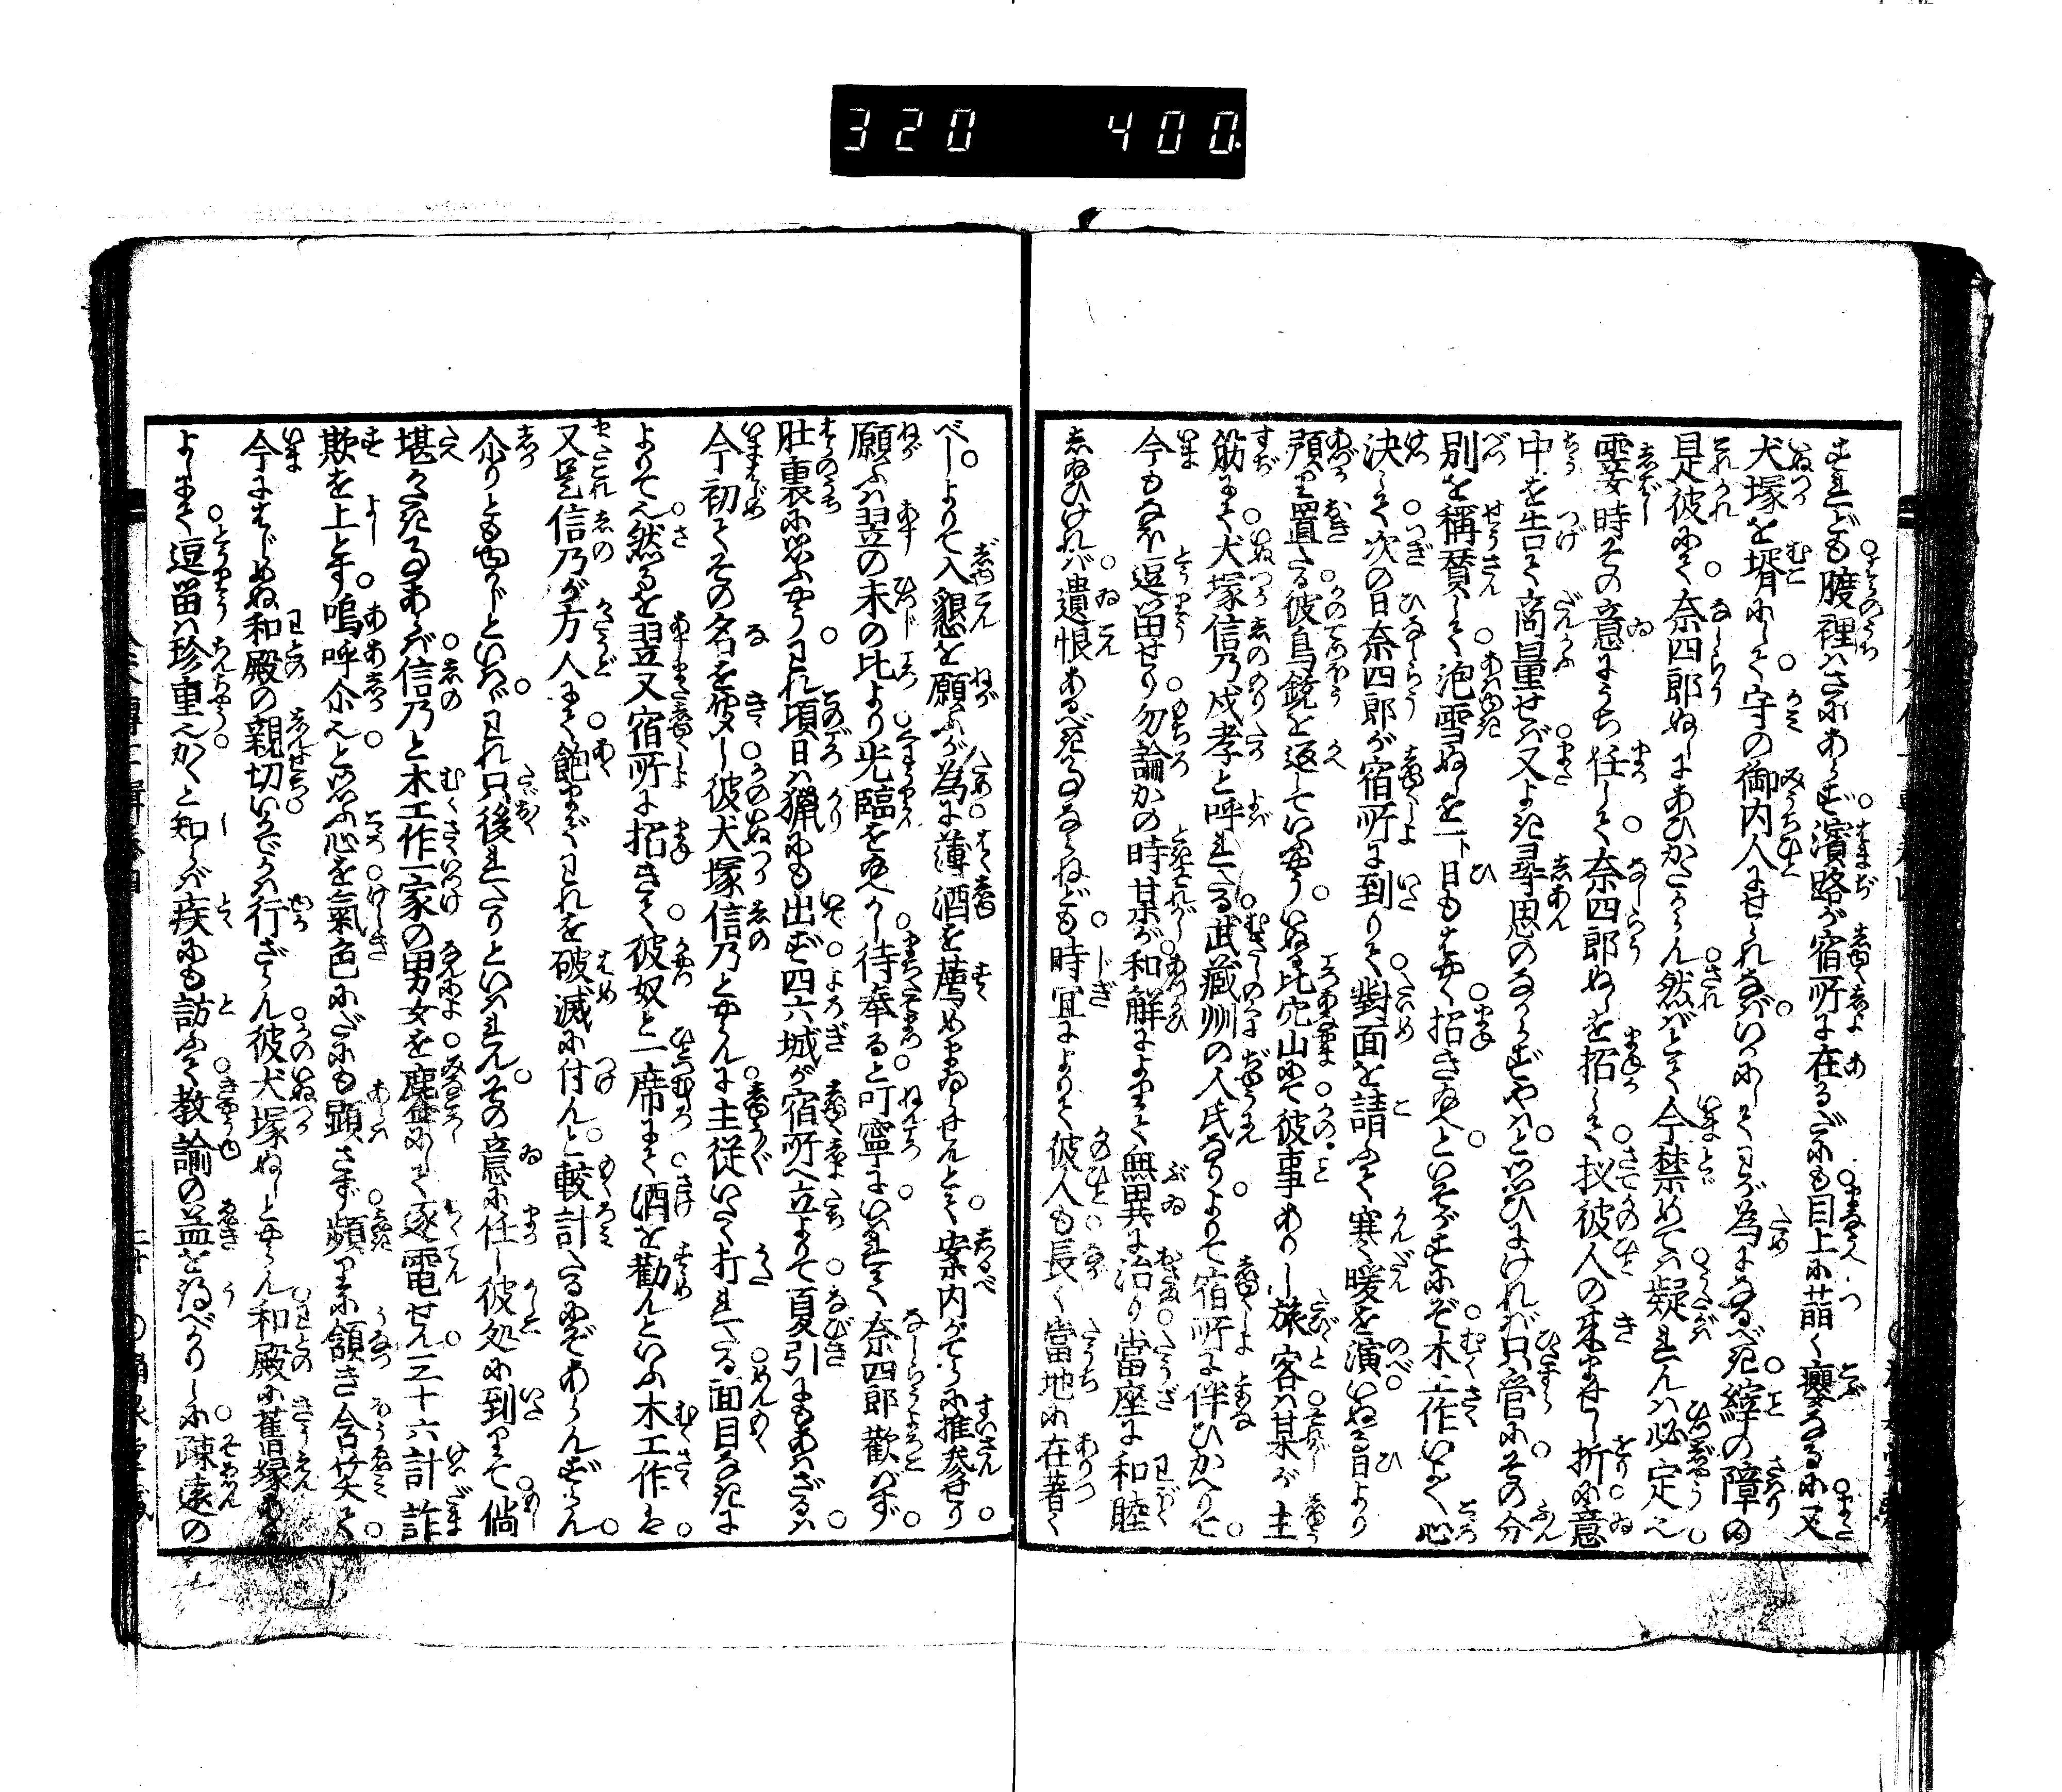 320 400
すれども肚裡はさにあらず濱路が宿所に在るだにも目上に萠く癭なるに又
犬塚を壻にして守の御内人にせられなばいかにしてわが為になるべき縡の障の
是彼にて奈四郎ぬしにあひかたからん然ばとて今禁めては疑れんは必定也
霎時その意にうち任して奈四郎ぬしを招して扨彼人の来ませし折に意
中を告て商量せば又よき尋思のなからずやはと思ひにければ只管にその分
別を稱賛して泡雪ぬしを一ト日もはやく招き給へといそがすにぞ木工作いよく心
決して次の日奈四郎が宿所に到りて對面を請ふて寒暖を演いぬる日より
預り置たる彼鳥銃を返していふやういぬる比穴山にて彼事ありし旅客は某が主
筋にて犬塚信乃戍孝と呼れたる武藏州の人氏なりよりて宿所に伴ひかへりて
今もなほ逗留せり勿論かの時某が和解によりて無異に治り當座に和睦
しぬひければ遺恨あるべき事ならねども時宜によりて彼人も長く當地に在著く
べしよりて入懇を願ふが為に薄酒を薦めまゐらせんとて案内がてらに推參せり
願ふは翌の未の比より光臨を給へかし待奉ると叮寧にいはれて奈四郎歡ばず
肚裏に思ふやうわれ頃日は獵にも出ず四六城が宿所へ立よりて夏引にもあはざるは
今初てその名を聞し彼犬塚信乃とやらんに主従いたく打れたる面目なきに
よりて也然るを翌又宿所に招きて彼奴と一席にて酒を勸んといふ木工作は
又是信乃が方人にて飽までわれを破滅に付んと較計たるにぞあらんずらん
尒りとも向じといはばわれ只後れたりといはれんその意に任し彼処に到りて倘
堪かたき事あらば信乃と木工作一家の男女を鏖にして逐電せん三十六計詐
欺を上とす嗚呼尒也と思ふ心を氣色にだにも顕さず頻りに頷き含笑て
今にはじめぬ和殿の親切いかでかは行ざらん彼犬塚ぬしとやらん和殿に舊縁ある
よしにて逗留は珍重也かくと知らば疾にも訪ふて教諭の益を得べかりしに疎遠の